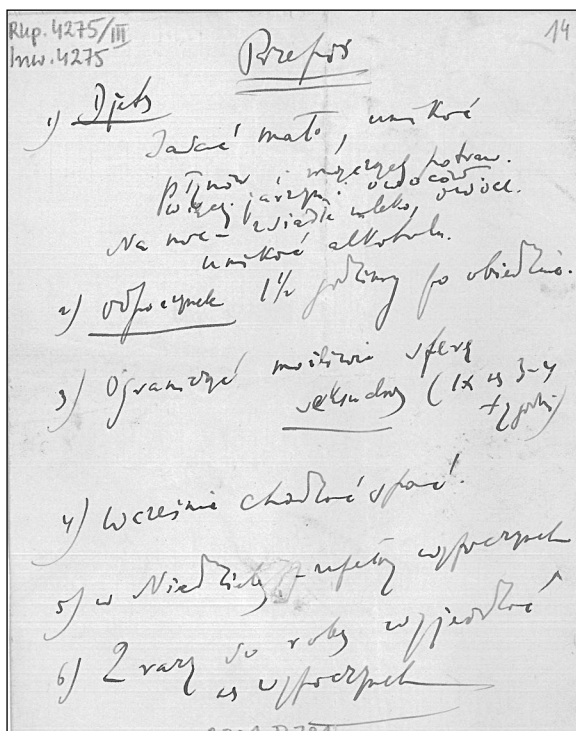 Rkp. 4275/III
Inw. 4275
14
Przepis
1) Djeta
Jadać mało, unikać
płynów i mącznych potraw.
Więcej jarzyn i owoców
Na noc - zsiadłe mleko, owoce.
unikać alkoholu.
2) Odpoczynek 1½ godziny po obiedzie.
3) Ograniczyć możliwie sferę
seksualną (1x na 3-4
tygodn)
4) Wcześnie chodzić spać.
5) w Niedzielę - zupełny wypoczynek
6) 2 razy do roku wyjeżdżać
na wypoczynek